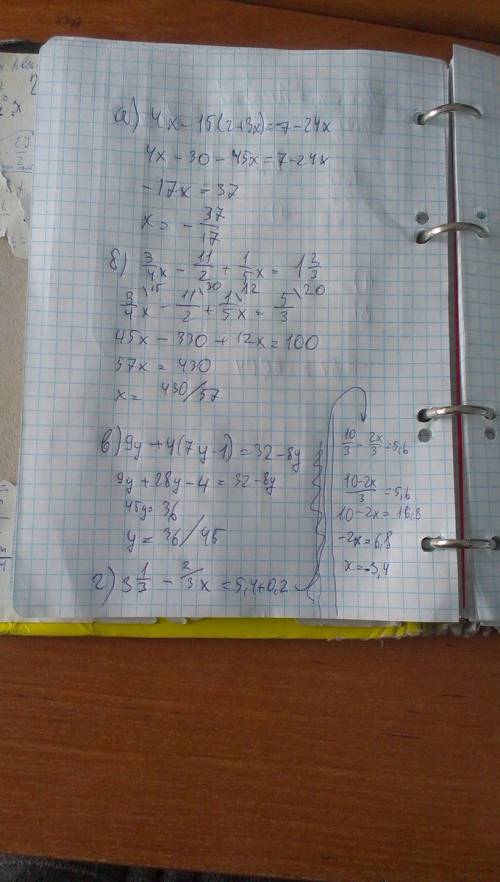 а) 4x - 15(2+3x) = 7 - 24x
4x - 30 - 45x = 7 - 24x
-17x = 37
x = - 37/17
б) 3/4x - 11/2 + 1/5x = 1 2/3
3/4x \15 - 11/2 \30 + 1/5x \12 = 5/3 \20
45x - 330 + 12x = 100
57x = 430
x = 430/57
в) 9y + 4(7y-1) = 32-8y
9y + 28y - 4 = 32-8y
45y = 36
y = 36/45
г) 3 1/3 - 2/3x = 5,4+0,2
10/3 - 2x/3 = 5,6
10-2x/3 = 5,6
10-2x = 16,8
-2x = 6,8
x = -3,4